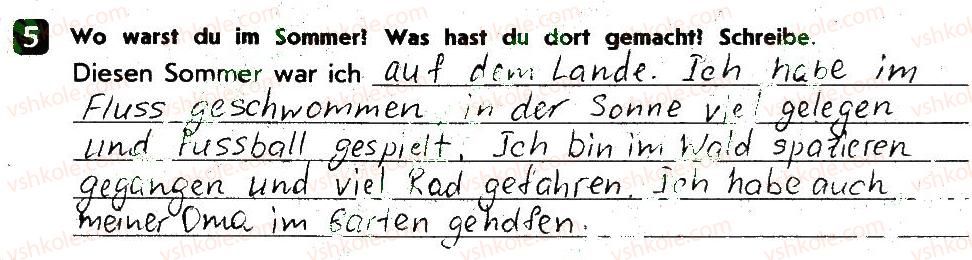 5 Wo warst du im Sommer? Was hast du dort gemacht? Schreibe.
Diesen Sommer war ich auf dem Lande. Ich habe im
Fluss geschwommen, in der Sonne viel gelegen
und Fussball gespielt. Ich bin im Wald spazieren
gegangen und viel Rad gefahren. Ich habe auch
meiner Oma im Garten geholfen.
vshkole.com